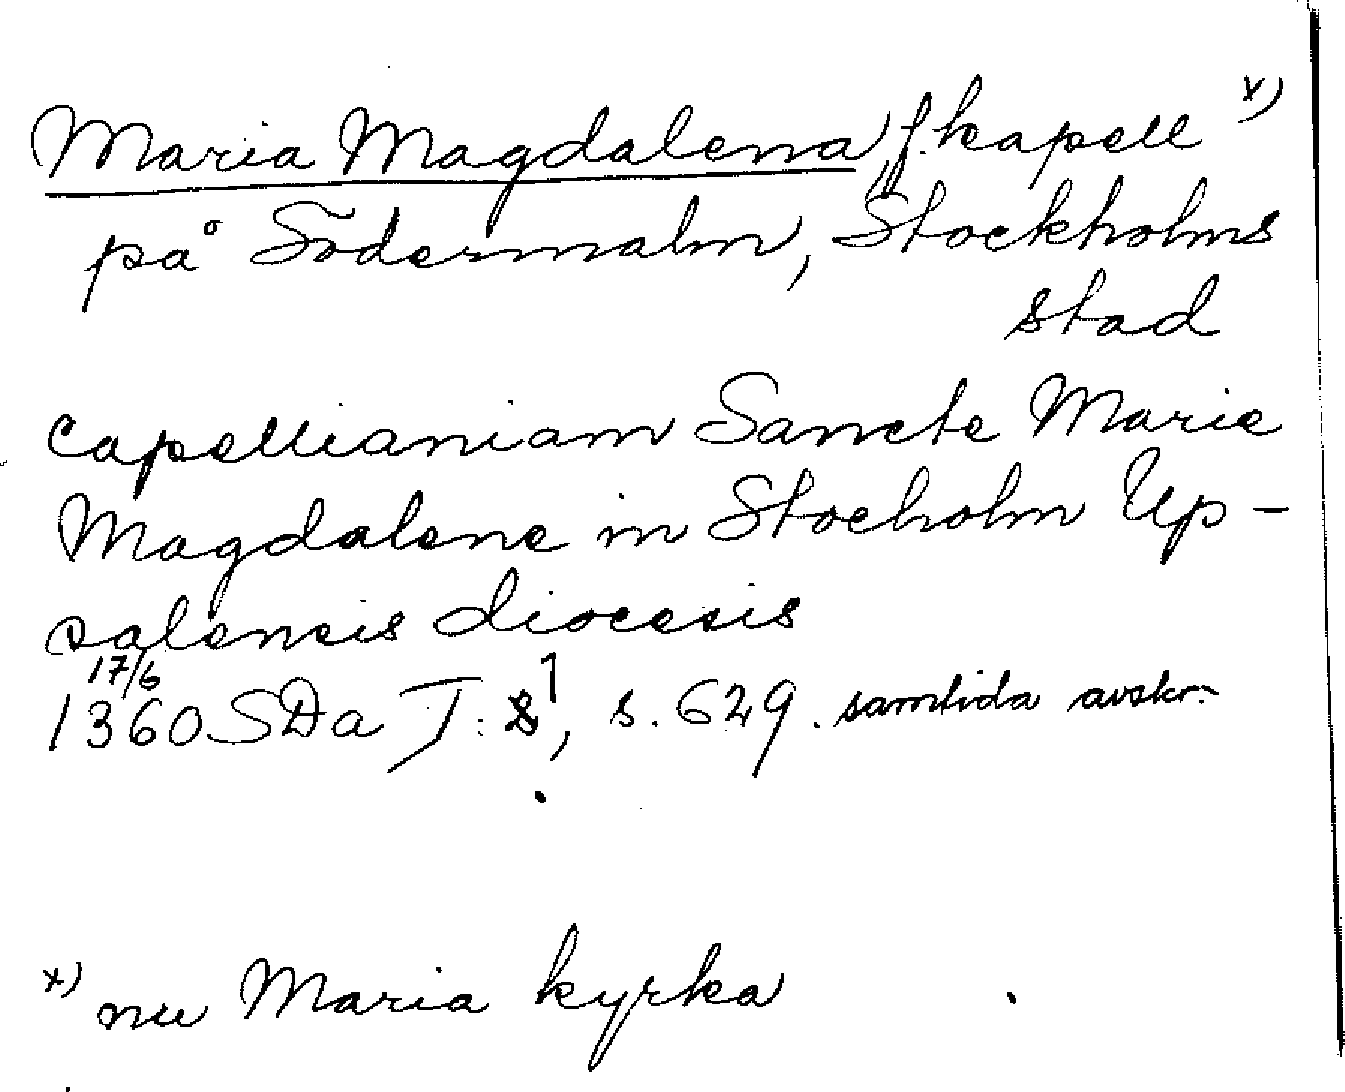 Maria Magdalena, f. kapell x)
på Södermalm, Stockholms
stad
capellianiam Sancte Marie
Magdalene in Stocholm Up-
salensis diocesis
17/6
1360 SDa I: 1, s. 629. samtida avskr.
x) nu Maria kyrka